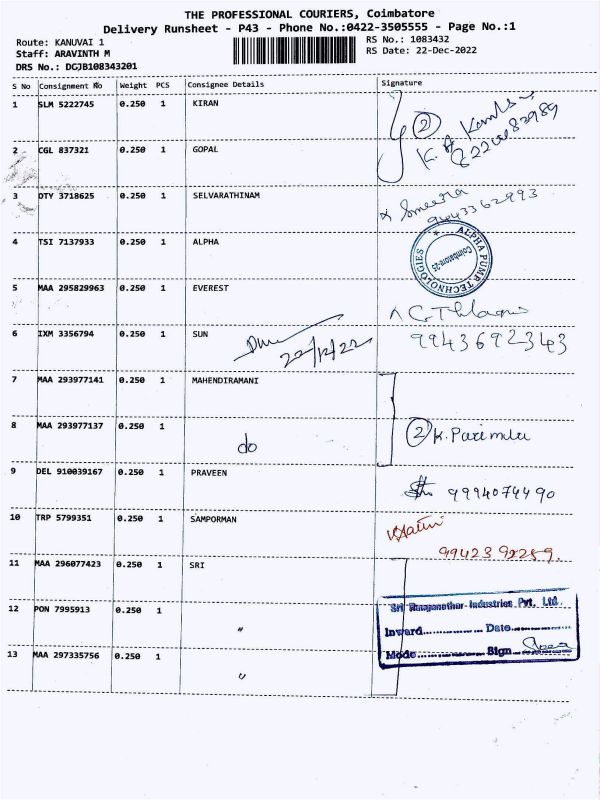 THE PROFESSIONAL COURIERS, Coimbatore
Delivery Runsheet - P43 - Phone No.:0422-3505555 - Page No.:1
Route: KANUVAI 1
Staff: ARAVINTH M
DRS No.: DGJB108343201
RS No.: 1083432
RS Date: 22-Dec-2022
S No Consignment No Weight PCS Consignee Details Signature
1 SLM 5222745 0.250 1 KIRAN
2
2 CGL 837321 0.250 1 GOPAL
3 DTY 3718625 0.250 1 SELVARATHINAM
9443362993
4 TSI 7137933 0.250 1 ALPHA
ALPHA PUMP TECHNOLOGIES
Coimbatore-25
5 MAA 295829963 0.250 1 EVEREST
6 IXM 3356794 0.250 1 SUN
22/12/22
9943692343
7 MAA 293977141 0.250 1 MAHENDIRAMANI
8 MAA 293977137 0.250 1
do
2 K. Parimla
9 DEL 910039167 0.250 1 PRAVEEN
9994074490
10 TRP 5799351 0.250 1 SAMPORMAN
9942392259.
11 MAA 296077423 0.250 1 SRI
Sri Ranganathar Industries Pvt. Ltd.
12 PON 7995913 0.250 1
〃
Inward.................. Date..................
Mode.................. Sign
13 MAA 297335756 0.250 1
〃